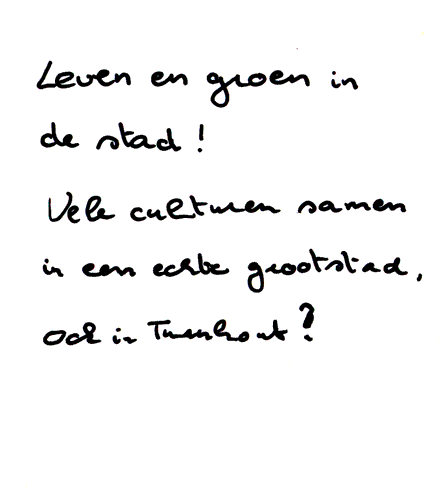 Leven en groen in
de stad!
Vele culturen samen
in een echte grootstad,
ook in Turnhout?